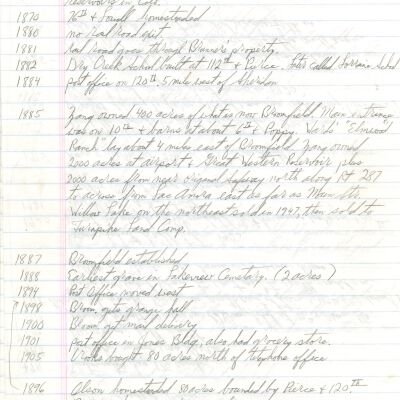 Reservoir in
1870 76th & Lowell homesteaded
1880 no rail road yet.
1881 rail road goes through Brunner's property.
1882 Dry Creek School built at 112th & Pierce. later called Lorraine School
1884 post office on 120th, 5 mile west of Sheridan
1885 Zang owned 400 acres of what is now Broomfield. Main entrance
was on 10th & barns at about 6th & Poppy. "Elmwood
Ranch" lay about 4 miles east of Broomfield. Zang owned
2000 acres at airport, Great Western Reservoir plus
2000 acres from near original Safeway north along Rt 287
to across from Lac Amora east as far as Main Str.
Willow Park on the northeast sold in 1947, then sold to
Turnpike Land Comp.
1887 Broomfield established
1888 Earliest grave in Lakeview Cemetary. (2 acres)
1894 Post Office moved west
1898 Broom. gets grange hall
1900 Broom. get mail delivery
1901 post office in Jones Bldg, also had grocery store.
1905 Crooks bought 80 acres north of telephone office
1896 Olson homesteaded 80 acres bounded by Pierce & 120th